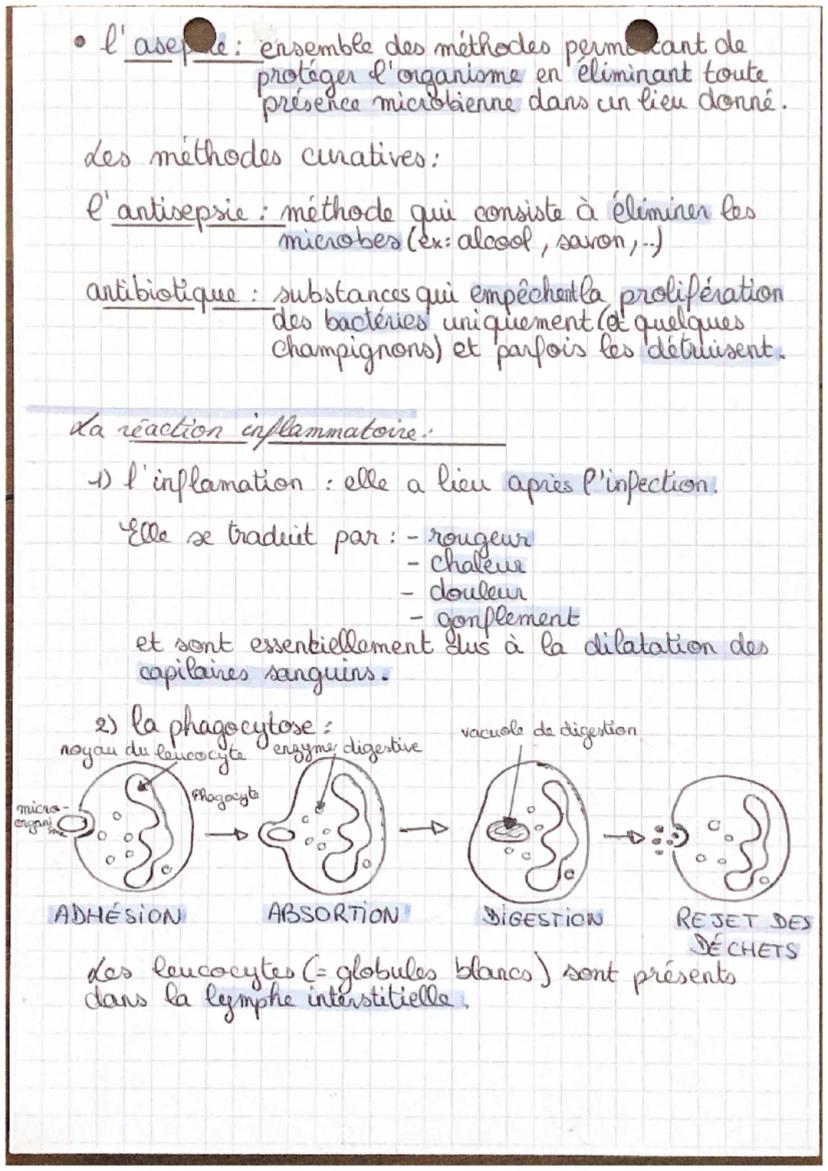 • l'asepsie : ensemble des méthodes permettant de
protéger l'organisme en éliminant toute
présence microbienne dans un lieu donné.
Les méthodes curatives :
l'antisepsie : méthode qui consiste à éliminer les
microbes (ex: alcool, savon, ..)
antibiotique : substances qui empêchent la prolifération
des bactéries uniquement (et quelques
champignons) et parfois les détruisent.
La réaction inflammatoire :
1) l'inflamation : elle a lieu après l'infection.
Elle se traduit par : - rougeur
- chaleur
- douleur
- gonflement
et sont essentiellement dus à la dilatation des
capilaires sanguins.
2) la phagocytose :
noyau du leucocyte
enzyme digestive
vacuole de digestion
Phagocyte
micro-
organisme
ADHÉSION
ABSORTION
DIGESTION
REJET DES
DÉCHETS
Les leucocytes (= globules blancs) sont présents
dans la lymphe interstitielle.